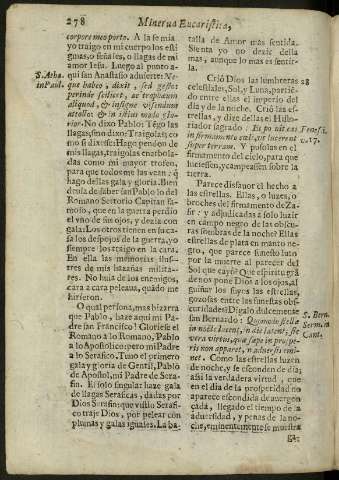 278 Minerua Eucaristica,
corpore meo porto. A la fe mia
yo traigo en mi cuerpo los esti
gmas, o señales, o llagas de mi
amor Iesu. Luego al punto a-
qui san Anastasio aduierte: Ne-
que habeo, dixit, sed gestot
perinde scilicet, ac trophæum
aliquod, & insigne visendum
attollo: & in istius modo glo-
rior. No dixo Pablo: Tẽgo las
llagas, sino dixo: Traigolas; co
mo si dixesse: Hago pendon de
mis llagas, traigolas enarbola-
das como mi mayor trofeo,
para que todos me las vean: q̃
hago dellas gala y gloria. Bien
deuia de saber san Pablo lo del
Romano Sertorio Capitan fa-
moso, que en la guerra perdio
el vno de sus ojos, y dezia con
gala: Los otros tienen en su ca-
sa los despojos de la guerra, yo
siempre los traigo en la cara.
En ella las memorias ilus-
tres de mis hazañas milita-
res. No huia de los enemigos,
cara a cara peleaua, quãdo me
hirieron.
O qual persona, mas bizarra
que Pablo, haze aqui mi Pa-
dre san Francisco! Gloriese el
Romano a lo Romano, Pablo
a lo Apostolico: pero mi Padre
a lo Serafico. Tuuo el primero
gala y gloria de Gentil, Pablo
de Apostol, mi Padre de Sera
fin. El solo singular haze gala
de llagas Seraficas, dadas por
Dios Serafin: que vistiò Serafi
co traje Dios, por pelear con
plumas y galas iguales. La ba-
S. Atha.
in Paul.
talla de Amor mas sentida.
Sienta yo no dezir della
mas, aunque lo mas es sentir-
la.
Criò Dios las lumbreras
celestiales, Sol, y Luna, partiò
entre ellas el imperio del
dia y de la noche. Criò las es-
trellas, y dize dellas el Histo-
riador sagrado: Et posuit eas
in firmamento cæli, vt lucerent
super terram. Y pusolas en el
firmamento del cielo, para que
luciessen, y campeassen sobre la
tierra.
Parece disfauor el hecho a
las estrellas. Ellas, o luzes, o
broches del firmamento de Za-
fir y adjudicadas a solo luzir
en campo negro de las obscu-
ras sombras de la noche? Ellas
estrellas de plata en manto ne-
gro, que parece funesto luto
por la muerte al parecer del
Sol que cayò? Que espiritu grã
de nos pone Dios a los ojos, al
guiñar los suyos las estrellas,
gozosas entre las funestas obs-
curidades? Digalo dulcemente
san Bernardo: Quomodo stellæ
in nocte lucent, in die latent; sic
vera virtus, quæ sæpe in prospe-
ris non apparet, in aduersis emi-
net. Como las estrellas luzen
de noche, y se esconden de dia;
assi la verdadera virtud, que
en el dia de la prosperidad no
aparece escondida de auergon
çada, llegado el tiempo de la
aduersidad, y penas de la no-
che, eminentemente se muestra
ga-
28
Genes. 1.
v. 17.
S. Bern.
Serm. in
Cant.